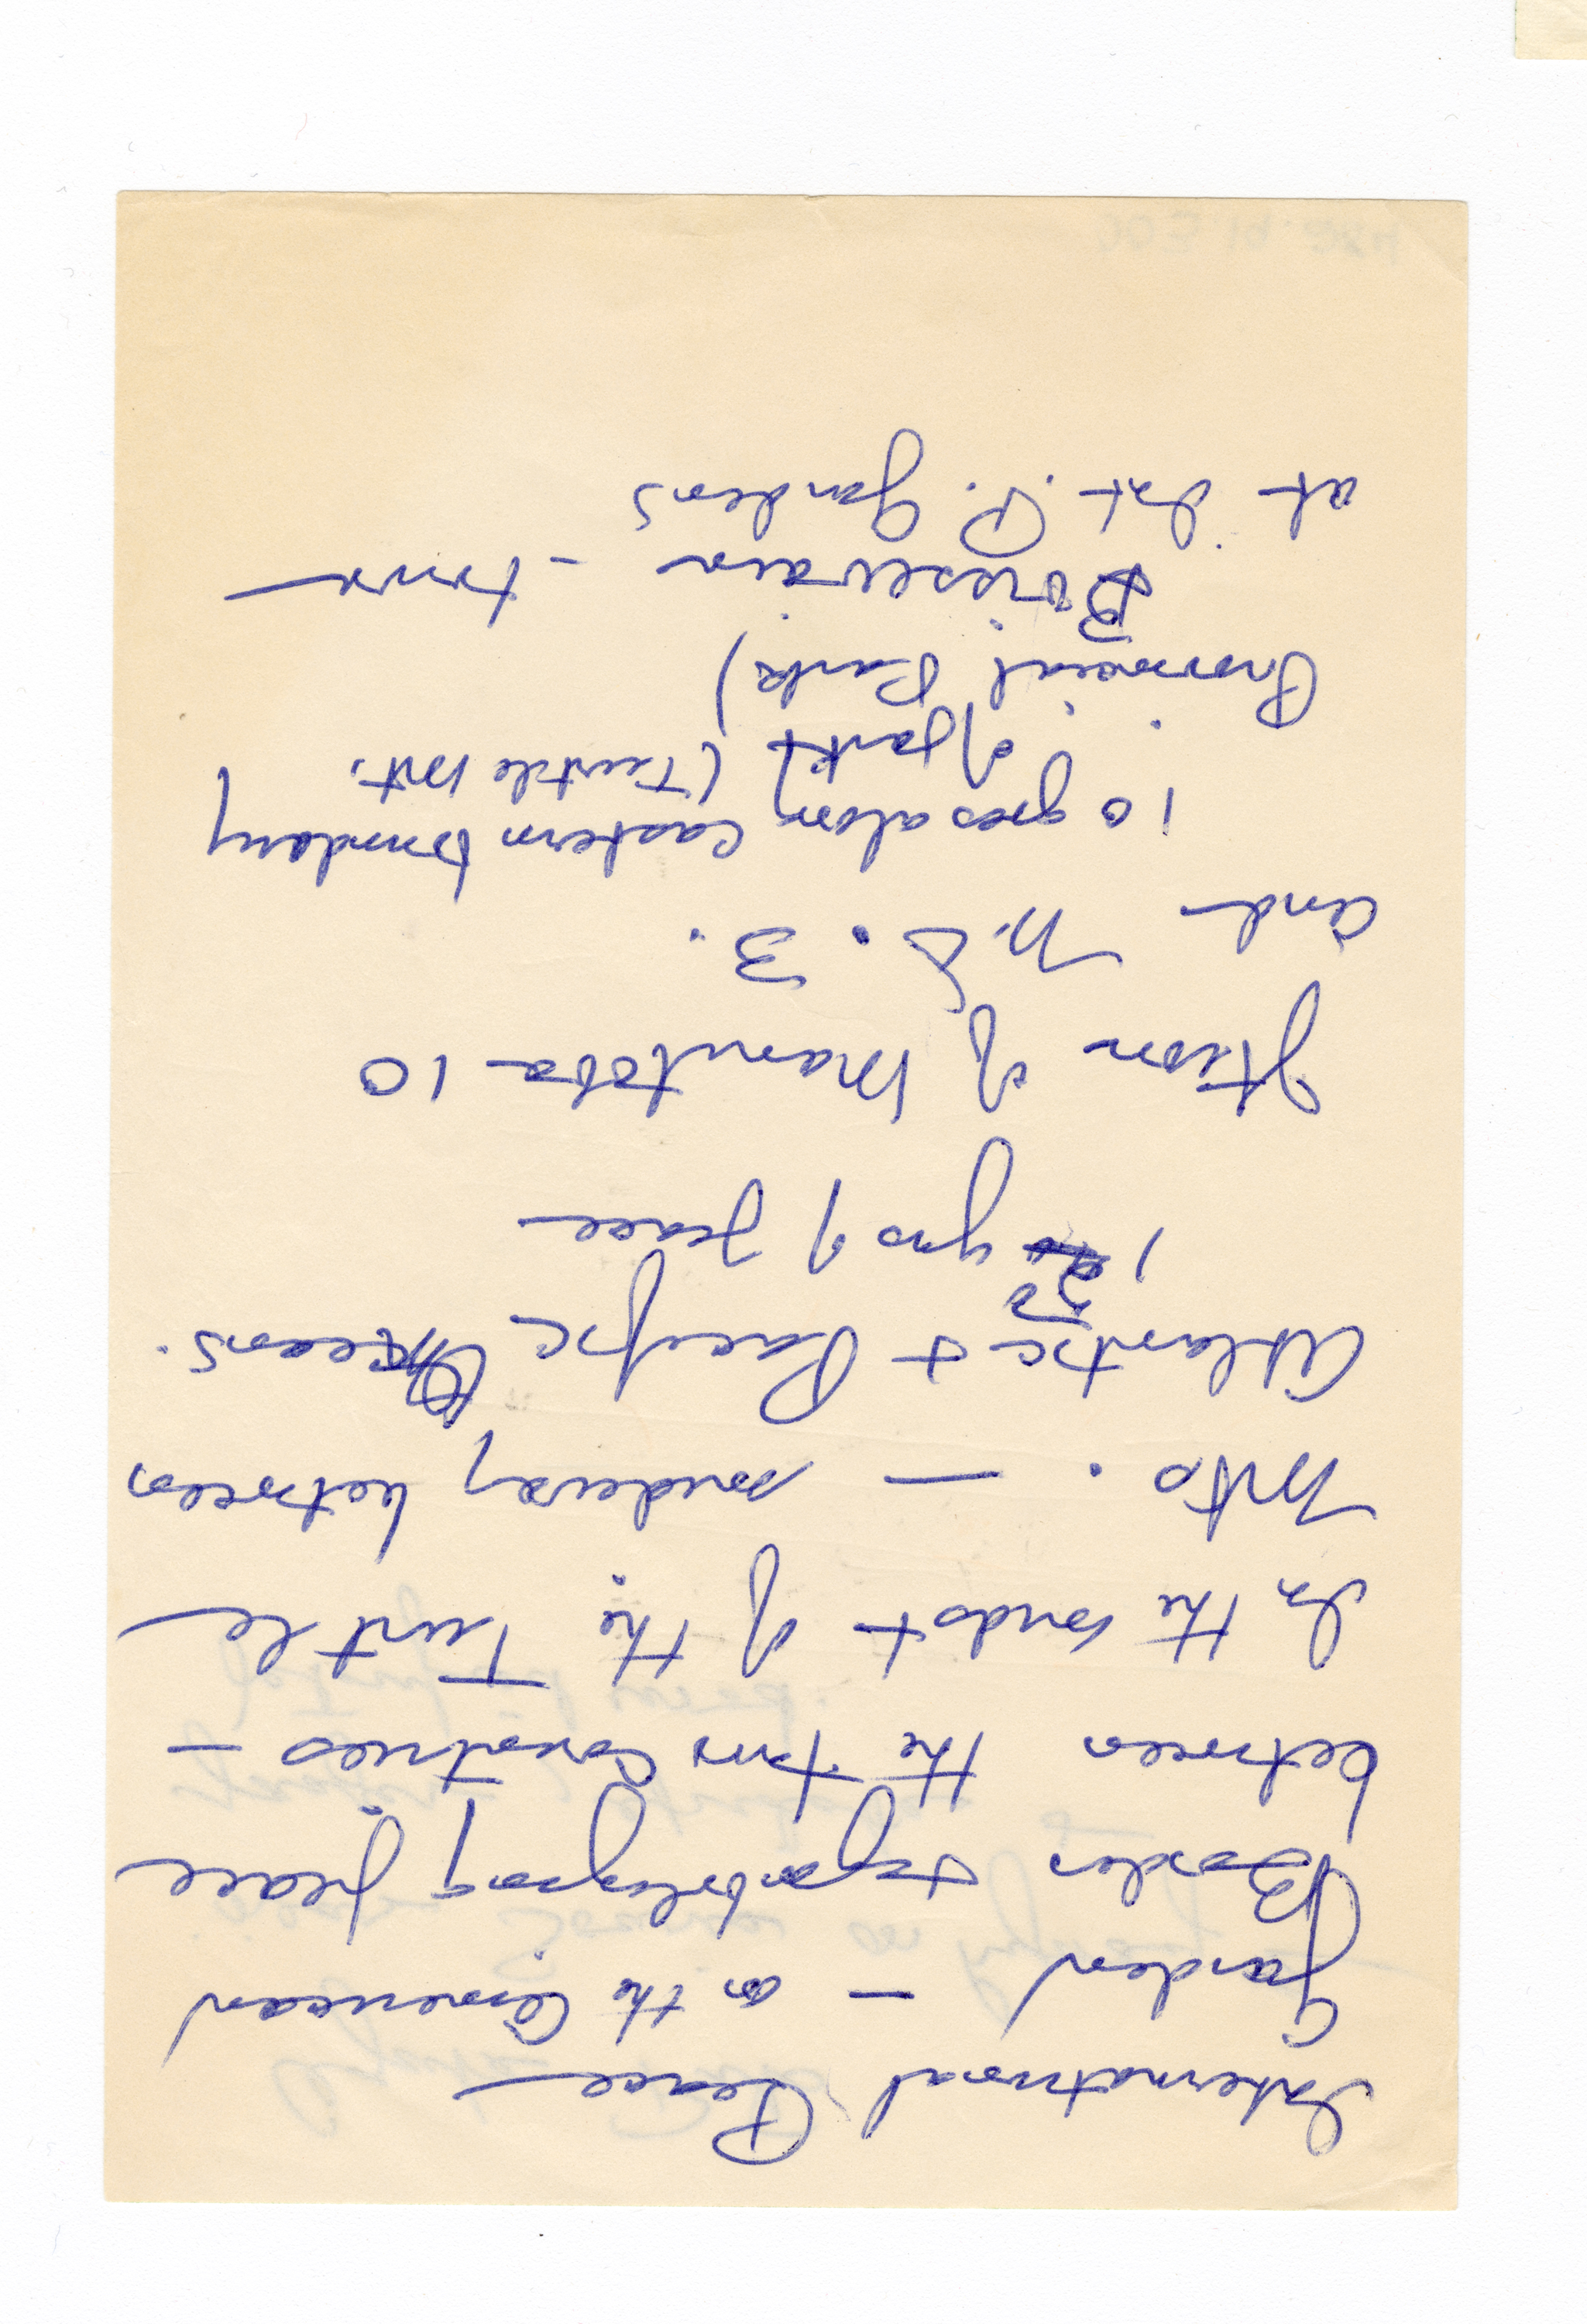 International Peace
Garden - on the American
Border symbolizing peace
between the two countries -
In the midst of the Turtle
Mts. - midway between
Atlantic & Pacific Oceans.
150 yrs of peace
Jtion of Manitoba 10
and N.D. 3.
10 goes along Eastern boundary
of park (Turtle Mt.
Provincial Park)
Boissevain - town
at Int. P. Gardens